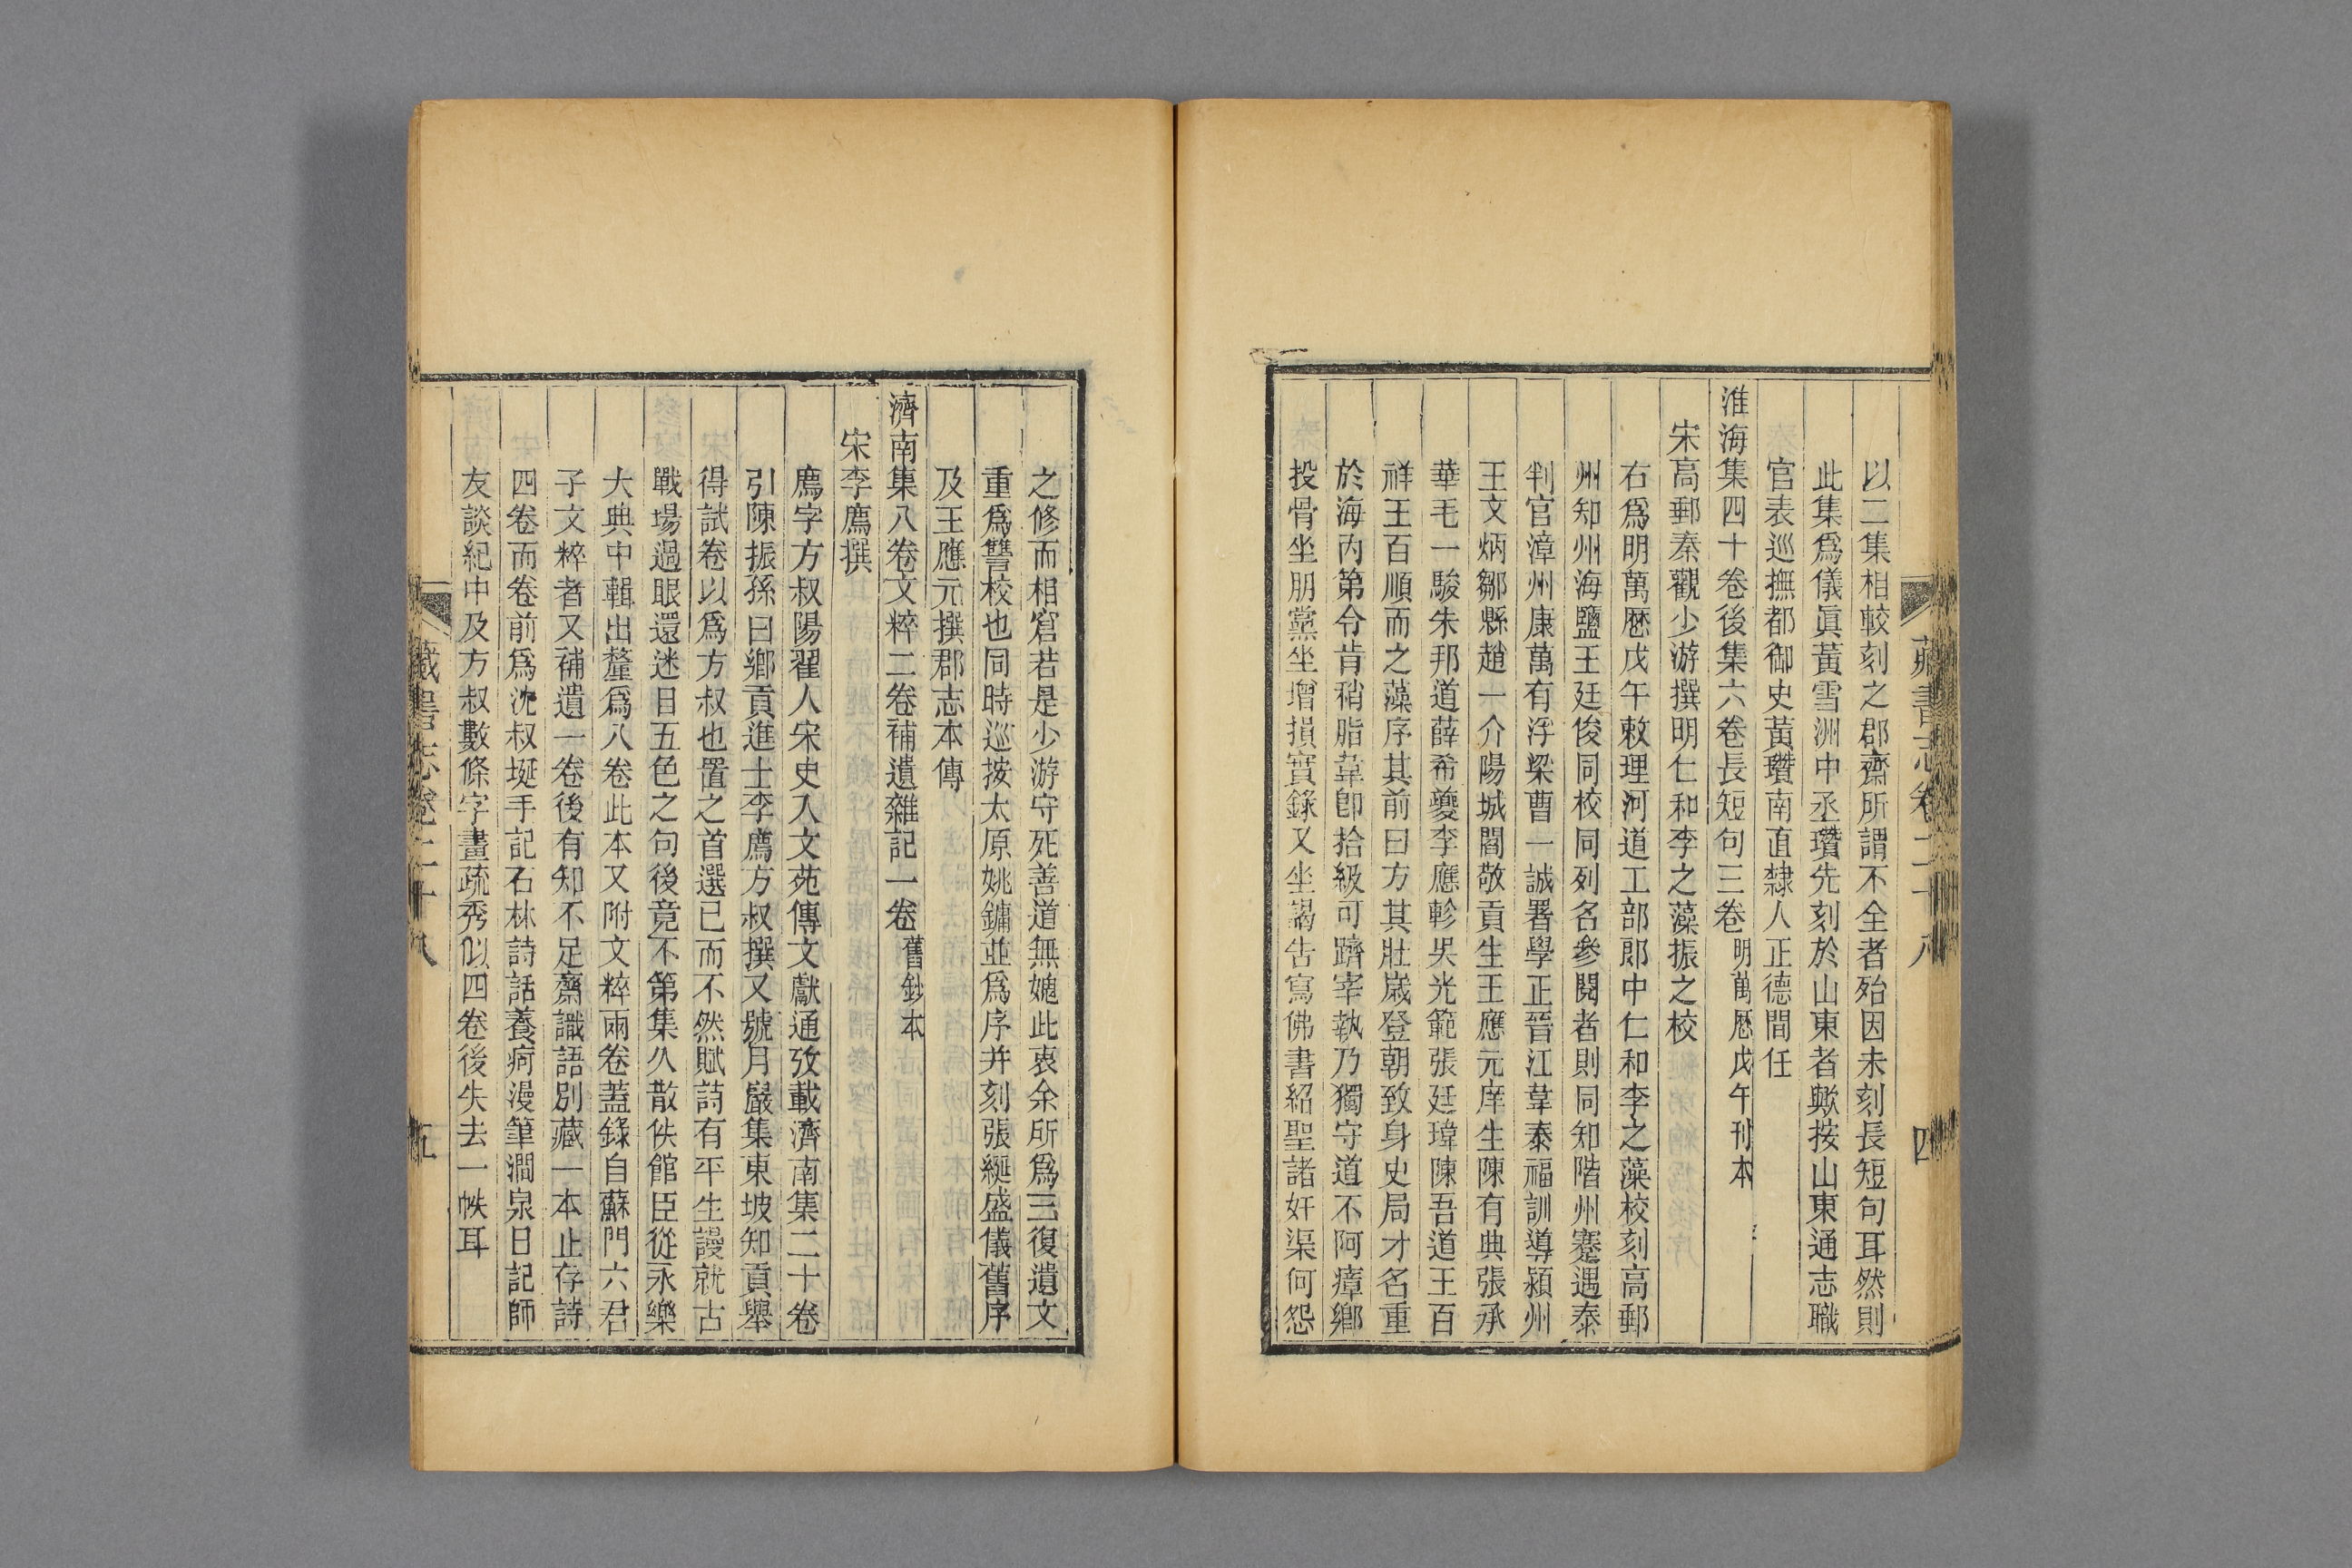 藏書志卷二十八
四
以二集相較刻之郡齋所謂不全者殆因未刻長短句耳然則
此集爲儀眞黃雪洲中丞瓚先刻於山東者歟按山東通志職
官表巡撫都御史黃瓚南直隸人正德間任
淮海集四十卷後集六卷長短句三卷 明萬厯戊午刊本
宋高郵秦觀少游撰明仁和李之藻振之校
右爲明萬厯戊午敕理河道工部郎中仁和李之藻校刻高郵
州知州海鹽王廷俊同校同列名參閱者則同知階州蹇遇泰
判官漳州康萬有浮梁曹一誠署學正晉江韋泰福訓導潁州
王文炳鄒縣趙一介陽城閻敬貢生王應元庠生陳有典張承
華毛一駿朱邦道薛希夔李應軫吳光範張廷瑋陳吾道王百
祥王百順而之藻序其前曰方其壯歲登朝致身史局才名重
於海內第令肯稍脂韋卽拾級可躋宰執乃獨守道不阿瘴鄉
投骨坐朋黨坐增損實錄又坐謁告寫佛書紹聖諸奸渠何怨
之修而相窘若是少游守死善道無媿此衷余所爲三復遺文
重爲讐校也同時巡按太原姚鏞並爲序幷刻張綖盛儀舊序
及王應元撰郡志本傳
濟南集八卷文粹二卷補遺雜記一卷 舊鈔本
宋李廌撰
廌字方叔陽翟人宋史入文苑傳文獻通攷載濟南集二十卷
引陳振孫曰鄉貢進士李廌方叔撰又號月巖集東坡知貢舉
得試卷以爲方叔也置之首選已而不然賦詩有平生謾說古
戰場過眼還迷日五色之句後竟不第集久散佚館臣從永樂
大典中輯出釐爲八卷此本又附文粹兩卷蓋錄自蘇門六君
子文粹者又補遺一卷後有知不足齋識語別藏一本止存詩
四卷而卷前爲沈叔埏手記石林詩話養疴漫筆澗泉日記師
友談紀中及方叔數條字畫疏秀似四卷後失去一帙耳
藏書志卷二十八
五